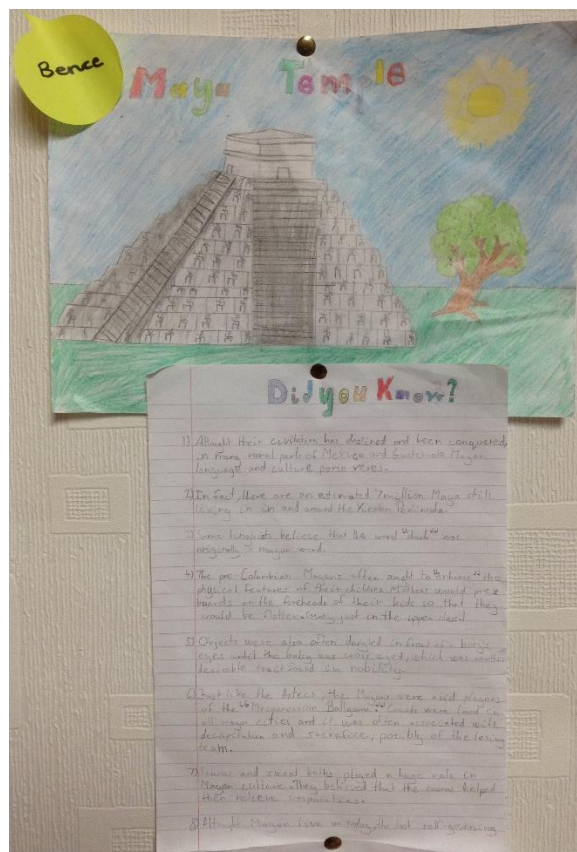 Bence
Maya Temple
Did you Know?
1) Althought their civilation has declined and been conquered
in mang rural parts of Mexico and Guatemala Mayan
language and culture
2) In fact, there are an estimated 7million Maya still
living in in and around the
3) Some linguists believe that the word "shark" was
originally a mayan word.
4) The pre Colombian Mayans often sought to the
physical features of their children Mothers would press
boards on the foreheads of their kids so that they
would be flatter. (mostly just in the upper class)
5) Objects were also often dangled in front of a baby's
eyes untill the baby was cross eyed, which was another
desirable in nobility.
6) Just like the Aztecs, the Mayans were avid players
of the "Mesoamerican Ballgame". Courts were found in
all maya cities and it was often associated with
decapitation and sacrafice, possibly of the losing
team.
7) Saunas and sweat baths played a huge role in
Mayan culture. They believed that the sauna helped
them releive impurities.
8) Mayan today, the last self-governing